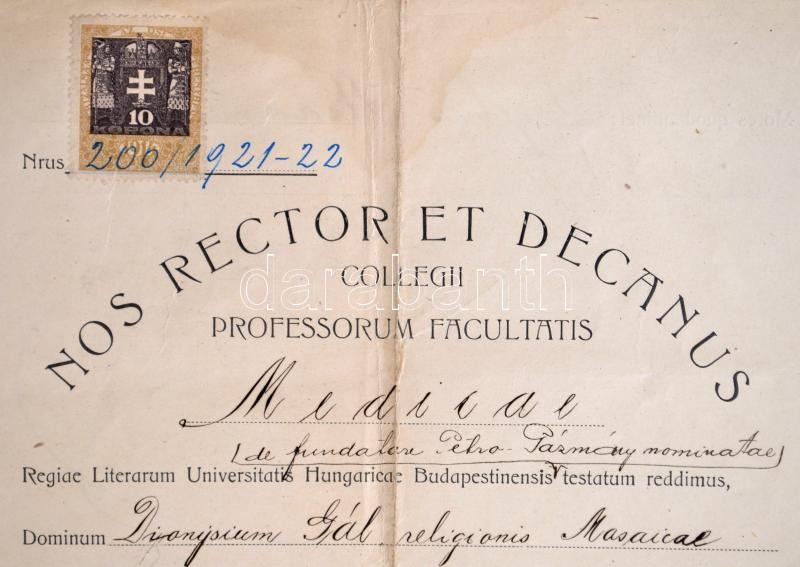 10
KORONA
1916
Nrus 200/1921-22
NOS RECTOR ET DECANUS
COLLEGII
PROFESSORUM FACULTATIS
Medicae
(de fundatore Petro Pázmány nominatae)
Regiae Literarum Universitatis Hungaricae Budapestinensis testatum reddimus,
Dominum Dionysium Gál religionis Mosaicae
darabanth